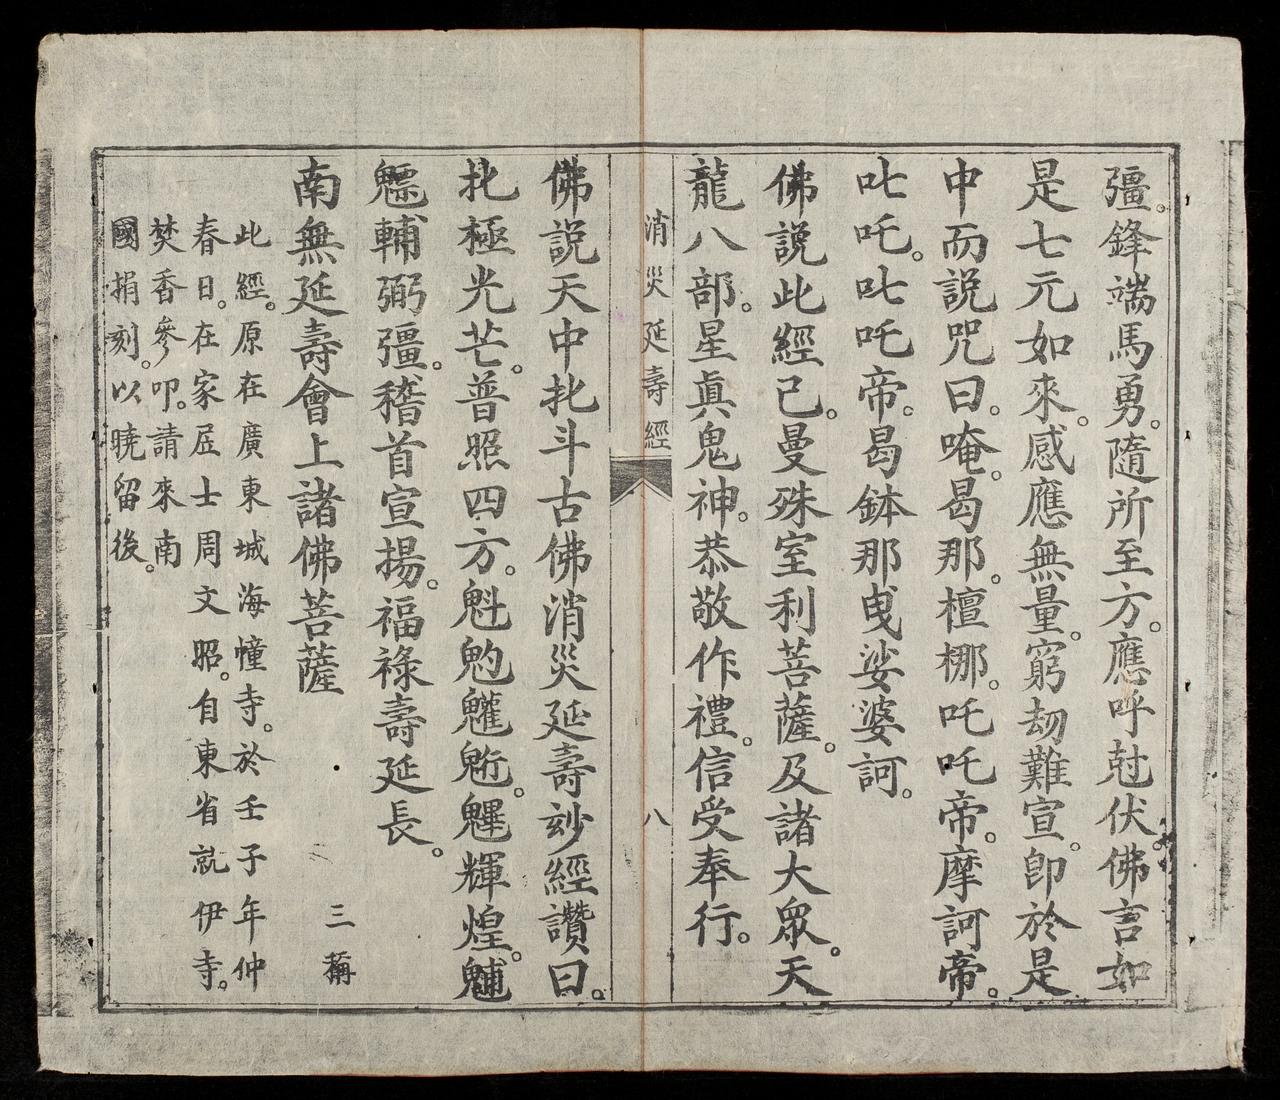 彊。鋒端馬勇。隨所至方。應呼尅伏。佛言如
是七元如來。感應無量。窮刼難宣。卽於是
中而說咒曰。唵。曷那。檀梛。吒吒帝。摩訶帝。
叱吒。叱吒帝。曷鉢那曵娑婆訶。
佛說此經已。曼殊室利菩薩。及諸大眾。天
龍八部。星眞鬼神。恭敬作禮。信受奉行。
消災延壽經
八
佛說天中北斗古佛消災延壽妙經讚曰。
北極光芒。普照四方。魁魡魓䰢。魓輝煌。䰣
魒輔弼彊。稽首宣揚。福祿壽延長。
南無延壽會上諸佛菩薩 三稱
此經。原在廣東城海幢寺。於壬子年仲
春日。在家居士周文昭。自東省就伊寺。
焚香參叩。請來南
國捐刻。以曉留後。